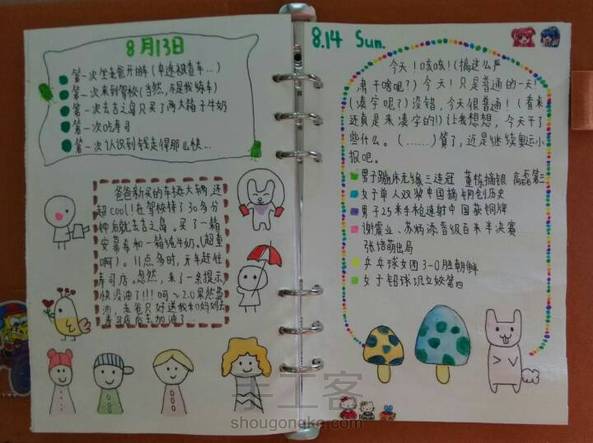 8月13日
第一次坐老爸开的车(卓连视看车…)
第一次来到驾校(当然,不是我练车)
第一次去吉之岛只买了两大箱子牛奶
第一次吃寿司
第一次认识到钱花得那么快…
爸爸新买的车
超cool!在驾校待了30多分
钟后就去吉之岛,买了一箱
安慕希和一箱纯牛奶,(超重
啊)。11点多时,开车赶往
寿司店。忽然,来了一条提示
快没油了!!!
8.14 Sun.
今天!咳咳!(搞这么严
肃干啥呢?)今天!只是普通的一天!
(凑字呢?)没错,今天很普通!(看来
还真是来凑字的!)让我想想,今天干了
些什么。(……)算了,还是继续奥运小
报吧。
男子蹦床无缘三连冠 董栋摘银 高磊第三
女子单人双桨中国摘铜创历史
男子25米手枪速射中国获铜牌
谢震业、苏炳添晋级百米半决赛
张培萌出局
乒乓球女团3-0胜朝鲜
女子铅球巩立姣第四
手工客
shougongke.com